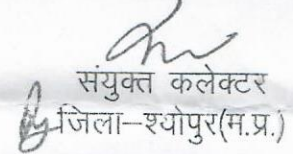 संयुक्त कलेक्टर
जिला–श्योपुर(म.प्र.)